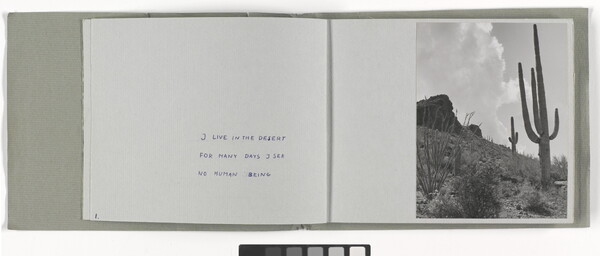 I LIVE IN THE DESERT
FOR MANY DAYS I SEE
NO HUMAN BEING
1.